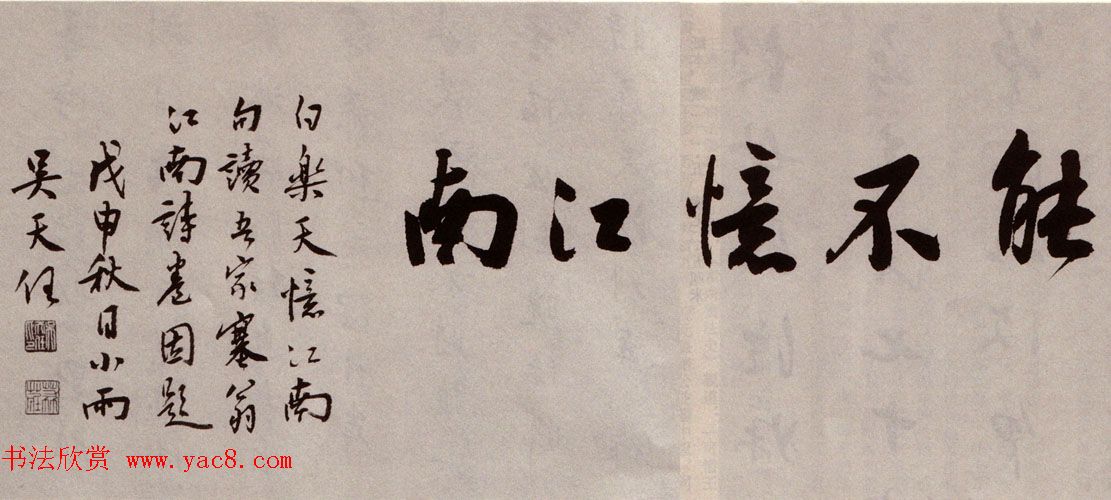 能不憶江南
白樂天憶江南
句讀吾家蹇翁
江南詩卷因題
戊申秋日小雨
吳天任
书法欣赏 www.yac8.com